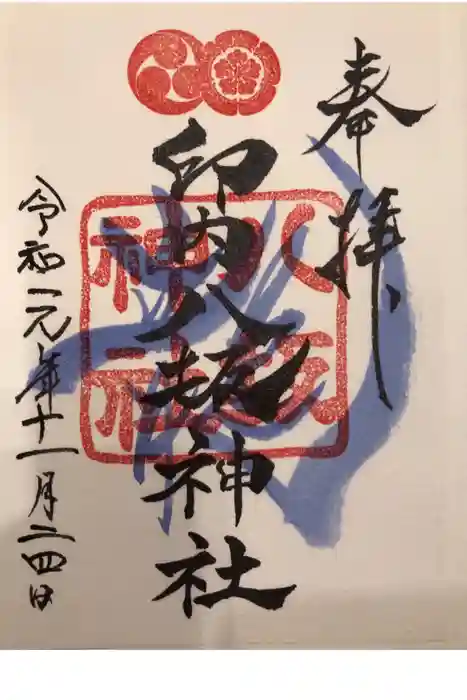 奉拝
印内八坂神社
八坂
神社
令和元年十一月二四日